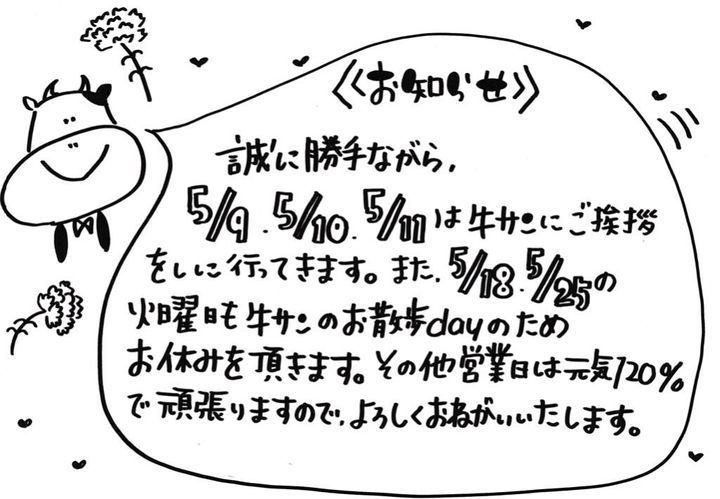 《お知らせ》
誠に勝手ながら、
5/9、5/10、5/11は牛サンにご挨拶
をしに行ってきます。また、5/18、5/25の
火曜日も牛サンのお散歩dayのため
お休みを頂きます。その他営業日は元気120%
で頑張りますので、よろしくおねがいいたします。